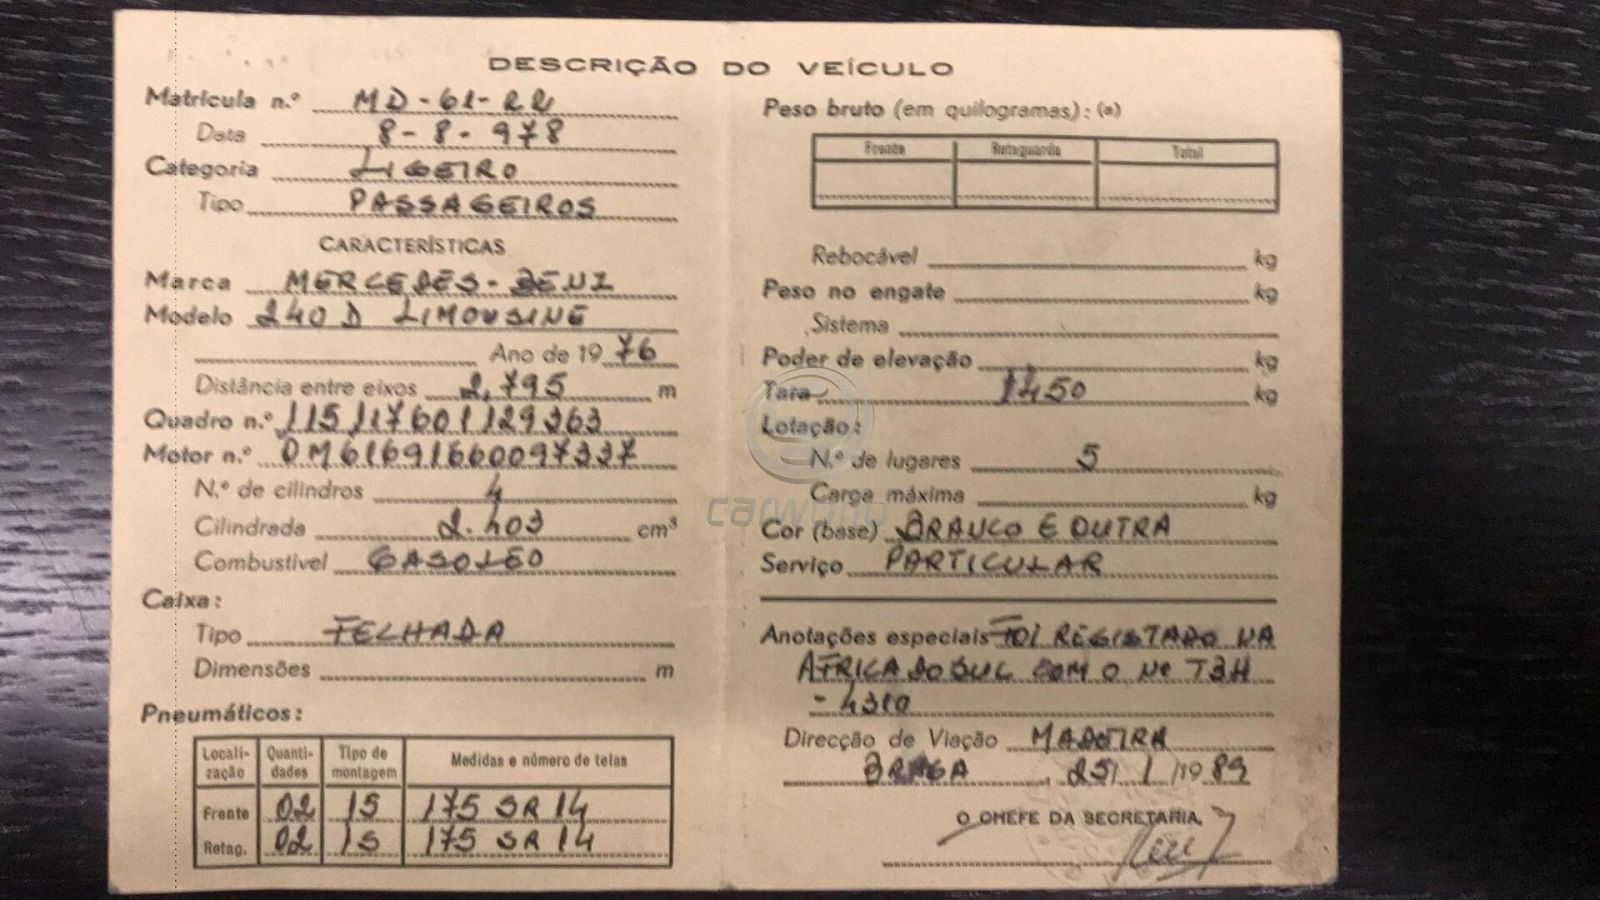 DESCRIÇÃO DO VEÍCULO
Matrícula n.º MD-61-22
Data 8-8-978
Categoria LIGEIRO
Tipo PASSAGEIROS
CARACTERÍSTICAS
Marca MERCEDES-BENZ
Modelo 240 D LIMOUSINE
Ano de 19 76
Distância entre eixos 2,795 m
Quadro n.º 115117601129363
Motor n.º OM61691660097337
N.º de cilindros 4
Cilindrada 2.403 cm³
Combustível GASOLEO
Caixa:
Tipo FECHADA
Dimensões m
Pneumáticos:
Locali-zação Quanti-dades Tipo de montagem Medidas e número de telas
Frente 02 15 175 SR 14
Retag. 02 15 175 SR 14
Peso bruto (em quilogramas): (a)
Frente Retaguarda Total
Rebocável kg
Peso no engate kg
Sistema
Poder de elevação kg
Tara 1450 kg
Lotação:
N.º de lugares 5
Carga máxima kg
Cor (base) BRANCO E OUTRA
Serviço PARTICULAR
Anotações especiais FOI REGISTADO NA
AFRICA DO SUL COM O Nº TBH
-4310
Direcção de Viação MADEIRA
BRAGA, 25/1/19 89
O CHEFE DA SECRETARIA,